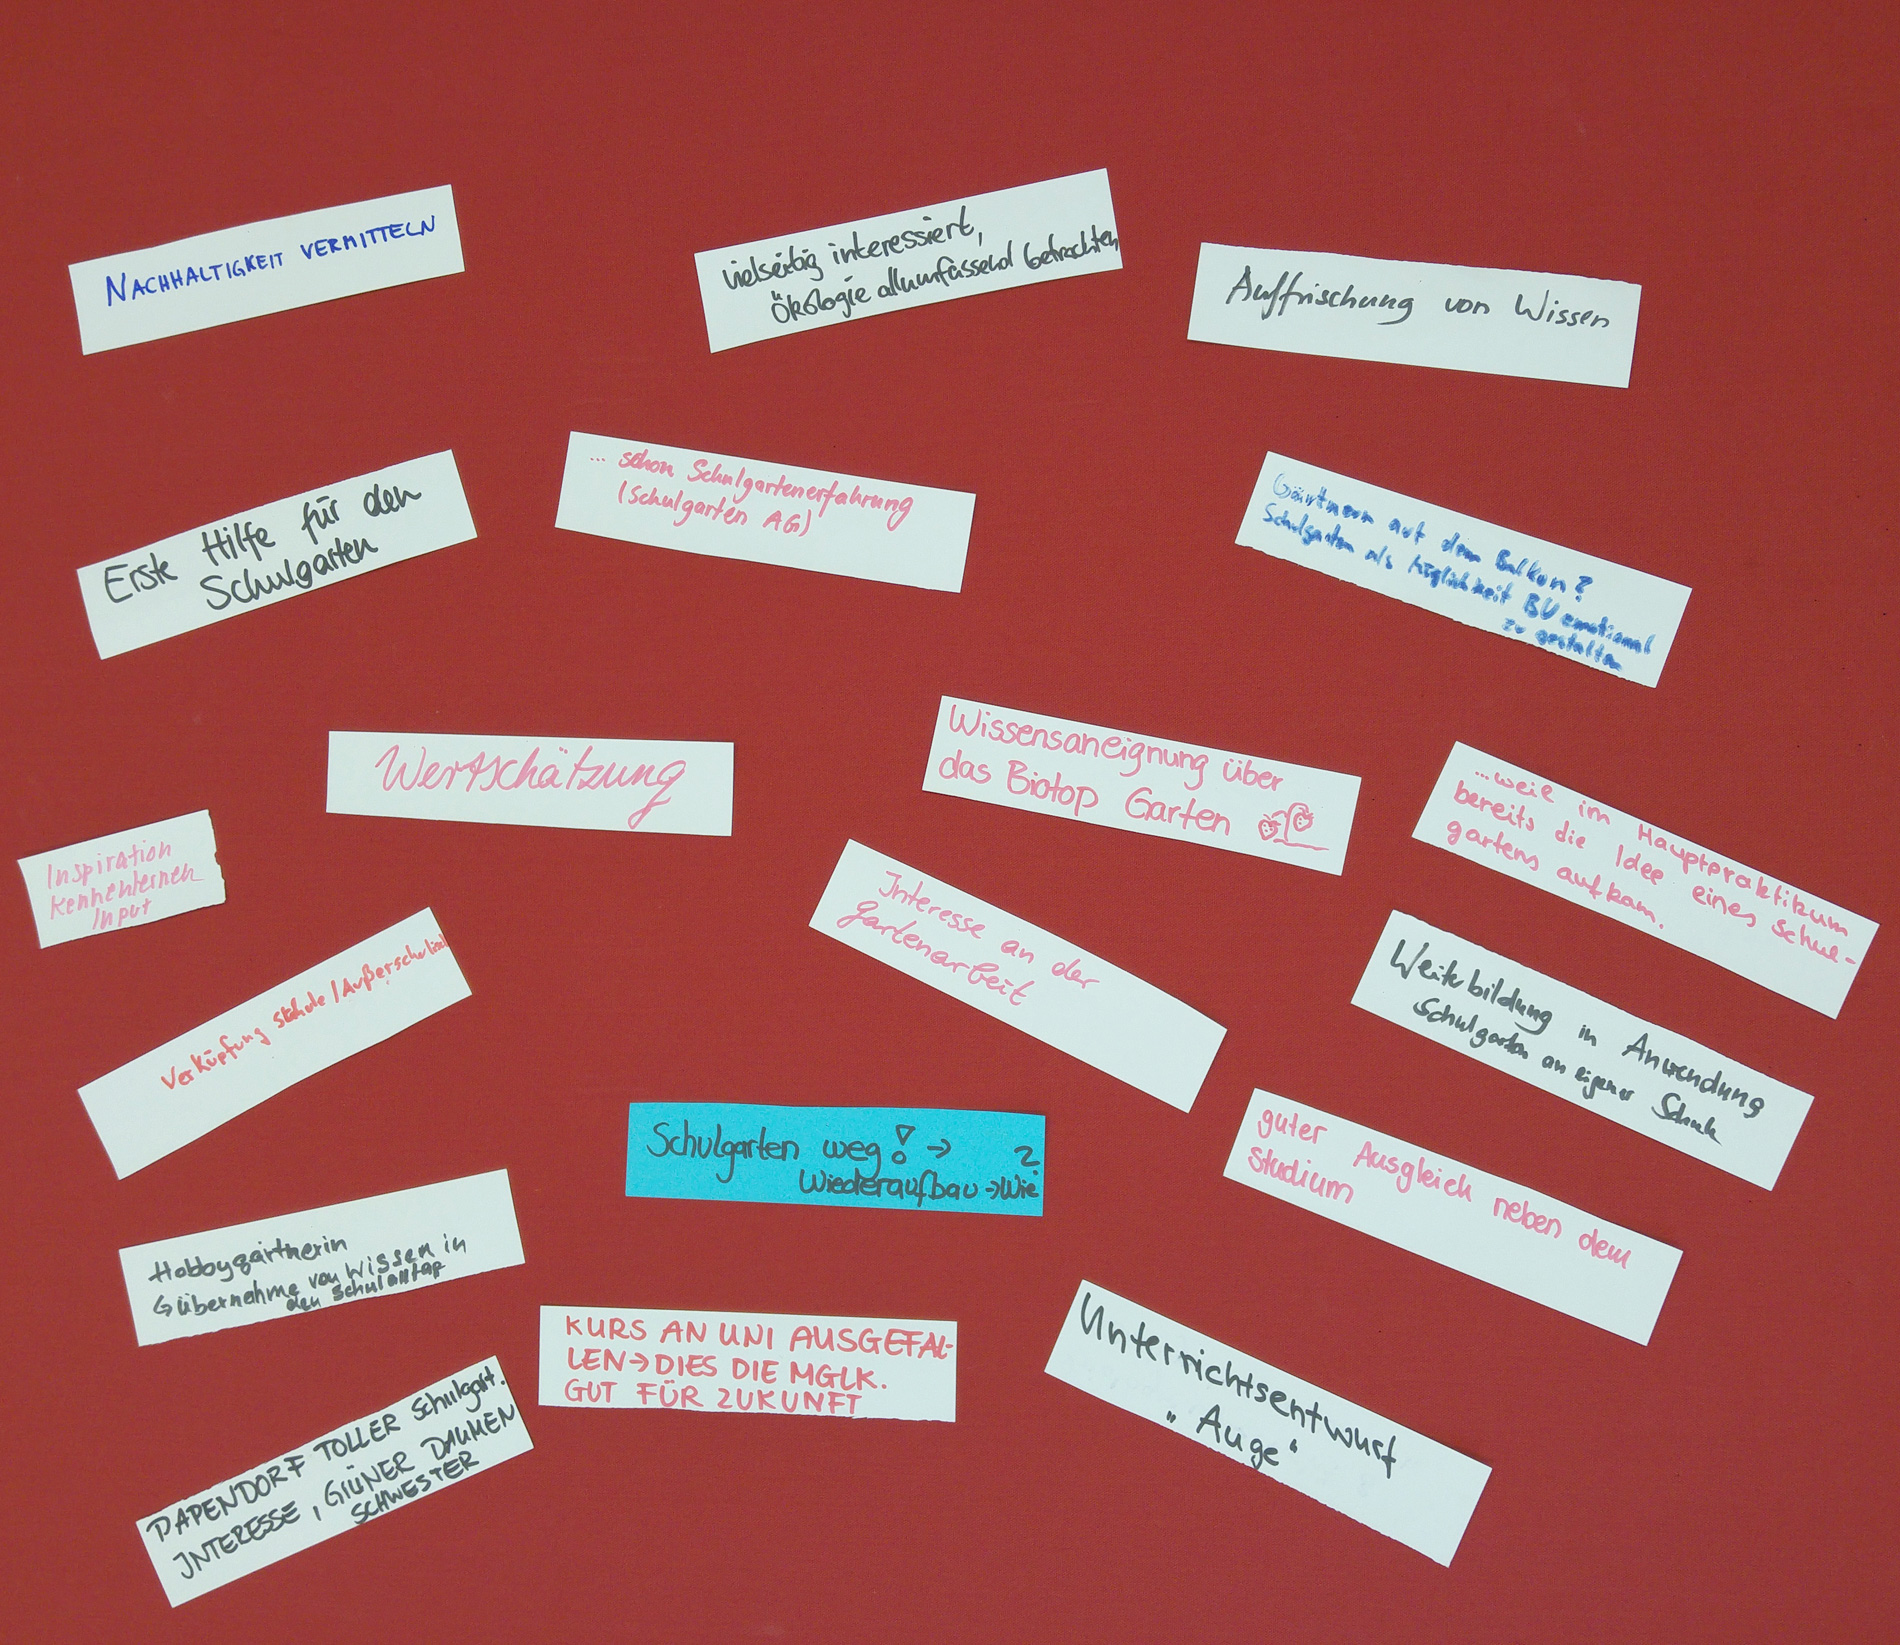 NACHHALTIGKEIT VERMITTELN
vielseitig interessiert,
Ökologie allumfassend betrachten
Auffrischung von Wissen
Erste Hilfe für den
Schulgarten
... schon Schulgartenerfahrung
(Schulgarten AG)
Gärtnern auf dem Balkon?
Schulgarten als Möglichkeit BU emotional
zu gestalten
Wertschätzung
Wissensaneignung über
das Biotop Garten
...weil im Hauptpraktikum
bereits die Idee eines Schul-
gartens aufkam.
Inspiration
Kennenlernen
Input
Interesse an der
Gartenarbeit
Weiterbildung in Anwendung
Schulgarten an eigener Schule
Verküpfung Schule/Außerschulisch
Schulgarten weg! →
Wiederaufbau → Wie?
guter Ausgleich neben dem
Studium
Hobbygärtnerin
↳ Übernahme von Wissen in
den Schulalltag
KURS AN UNI AUSGEFAL-
LEN → DIES DIE MGLK.
GUT FÜR ZUKUNFT
Unterrichtsentwurf
„Auge“
PAPENDORF TOLLER Schulgart.
INTERESSE, GRÜNER DAUMEN
SCHWESTER